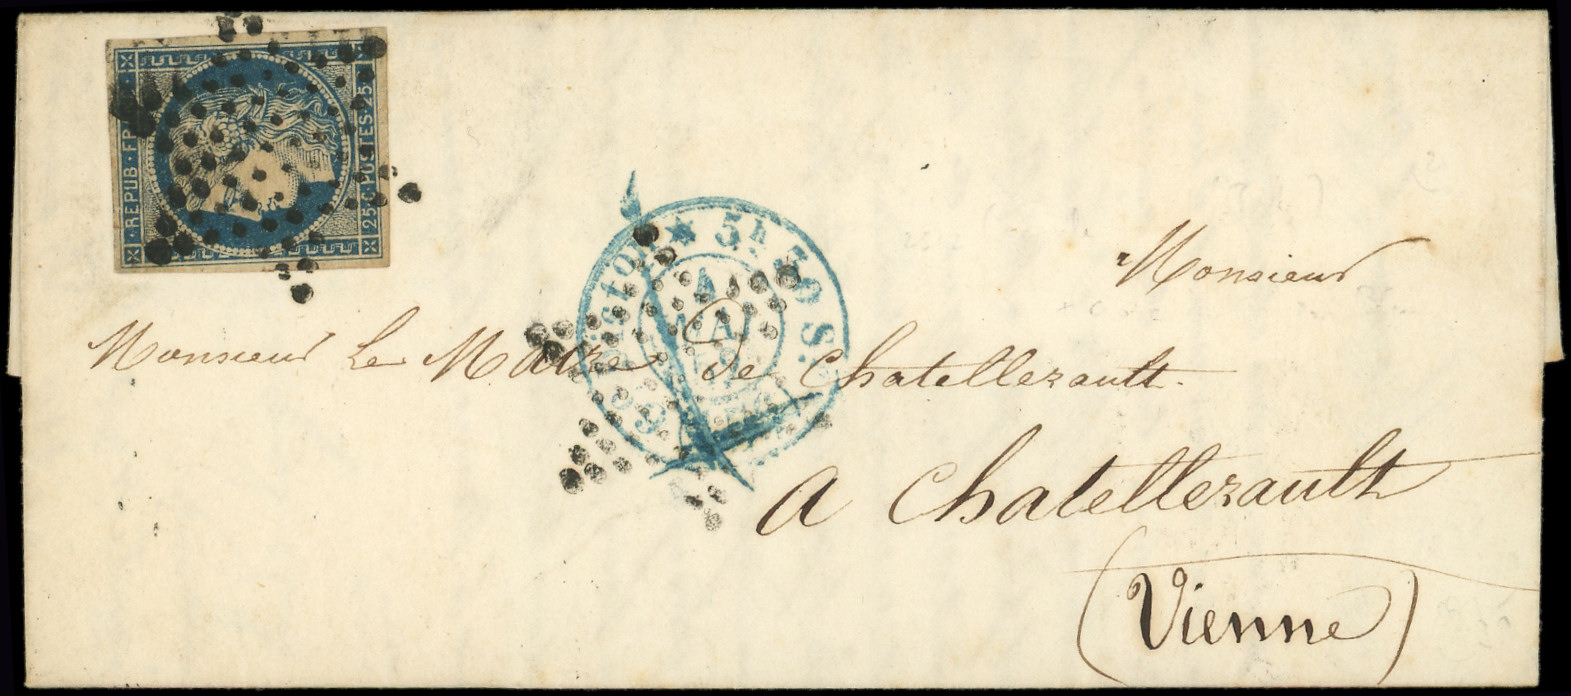 REPUB FR
25 C. POSTES 25
Monsieur
Monsieur Le Maire de Chatellerault.
A Chatellerault
(Vienne)
4
MAI